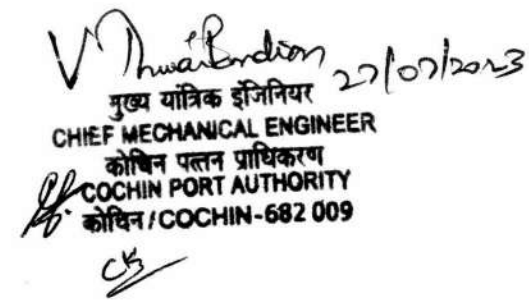 27/07/2023
मुख्य यांत्रिक इंजिनियर
CHIEF MECHANICAL ENGINEER
कोचिन पत्तन प्राधिकरण
COCHIN PORT AUTHORITY
कोचिन / COCHIN-682 009